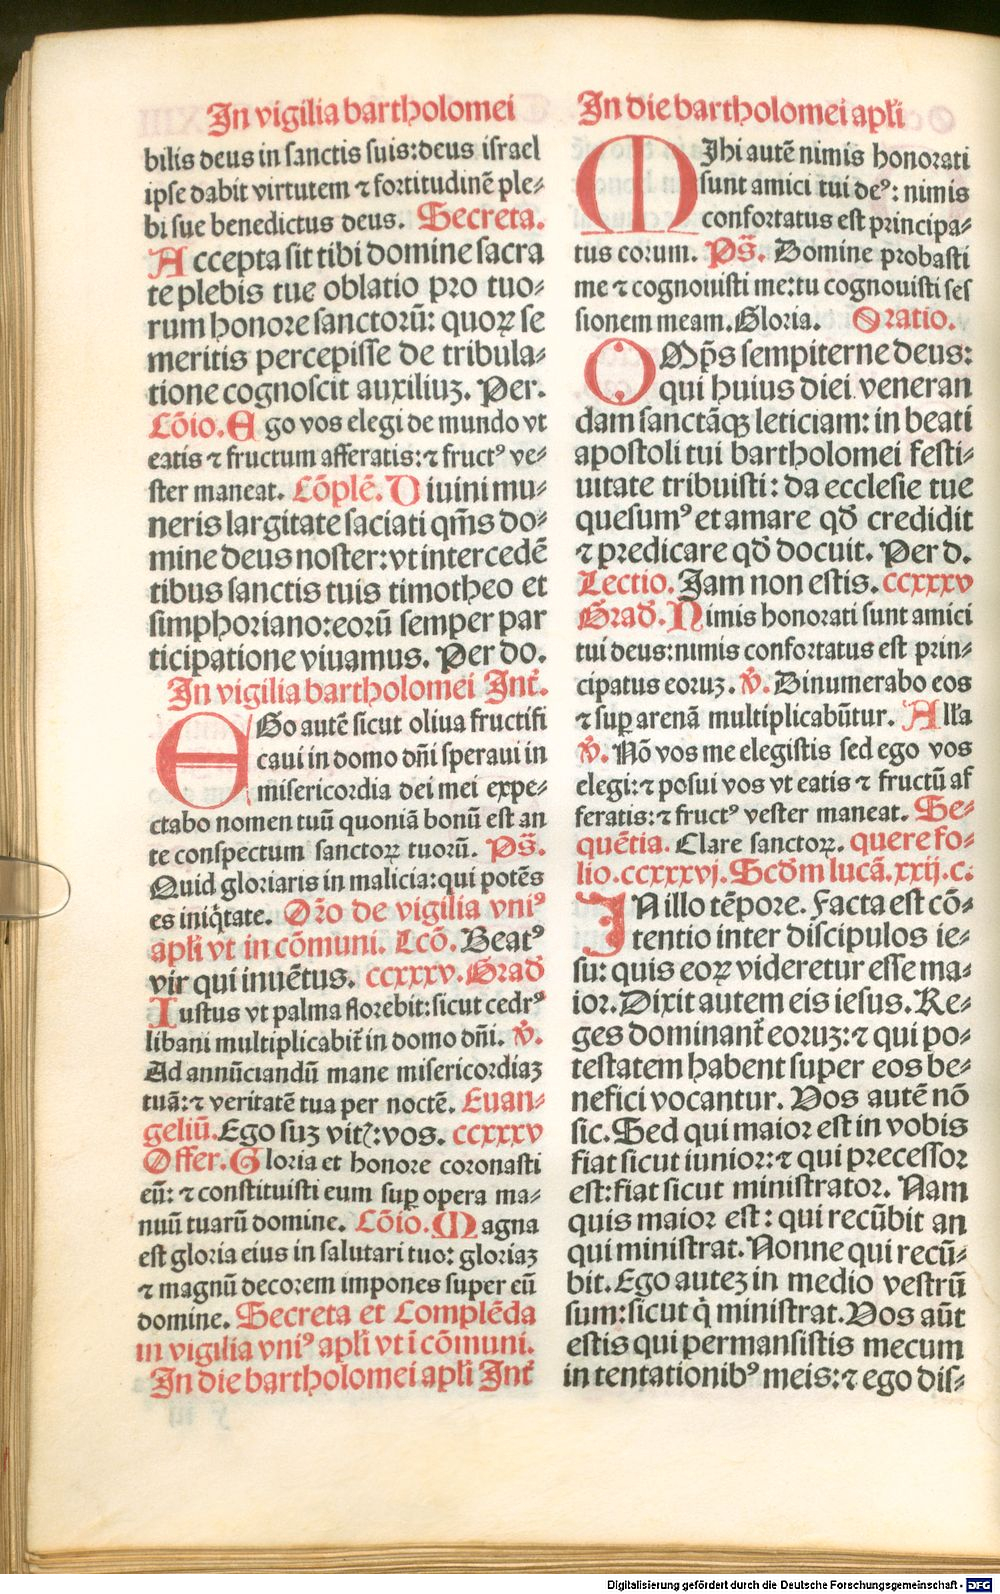 In vigilia bartholomei
bilis deus in sanctis suis: deus israel
ipse dabit virtutem ⁊ fortitudinē ple⸗
bi sue benedictus deus. Secreta.
Accepta sit tibi domine sacra
te plebis tue oblatio pro tuo⸗
rum honore sanctorū: quoꝝ se
meritis percepisse de tribula⸗
tione cognoscit auxiliuꝫ. Per.
Cōio. Ego vos elegi de mundo vt
eatis ⁊ fructum afferatis: ⁊ fructꝰ ve⸗
ster maneat. Cōplē. Diuini mu⸗
neris largitate saciati qm̄s do⸗
mine deus noster: vt intercedē
tibus sanctis tuis timotheo et
simphoriano: eorū semper par
ticipatione viuamus. Per do.
In vigilia bartholomei Int̄.
EGo autē sicut oliua fructifi
caui in domo dn̄i speraui in
misericordia dei mei expe⸗
ctabo nomen tuū quoniā bonū est an
te conspectum sanctoꝝ tuorū. Ps̄.
Quid gloriaris in malicia: qui potēs
es iniq̇tate. Or̄o de vigilia vniꝰ
apl̄i vt in cōmuni. Lcō. Beatꝰ
vir qui inuētus. ccxxxv. Grad̄
Iustus vt palma florebit: sicut cedrꝰ
libani multiplicabit̄ in domo dn̄i. ℣.
Ad annūciandū mane misericordiaꝫ
tuā: ⁊ veritatē tua per noctē. Euan⸗
geliū. Ego suꝫ vitꝭ: vos. ccxxxv
Offer. Gloria et honore coronasti
eū: ⁊ constituisti eum suꝑ opera ma⸗
nuū tuarū domine. Cōio. Magna
est gloria eius in salutari tuo: gloriaꝫ
⁊ magnū decorem impones super eū
domine. Secreta et Complēda
in vigilia vniꝰ apl̄i vt ī cōmuni.
In die bartholomei apl̄i Int̄
In die bartholomei apl̄i
MIhi autē nimis honorati
sunt amici tui deꝰ: nimis
confortatus est principa⸗
tus corum. Ps̄. Domine probasti
me ⁊ cognouisti me: tu cognouisti ses
sionem meam. Gloria. Oratio.
OMps̄ sempiterne deus:
qui huius diei veneran
dam sanctāqꝫ leticiam: in beati
apostoli tui bartholomei festi⸗
uitate tribuisti: da ecclesie tue
quesumꝰ et amare qd̄ credidit
⁊ predicare qd̄ docuit. Per d.
Lectio. Jam non estis. ccxxxv
Grad̄. Nimis honorati sunt amici
tui deus: nimis confortatus est prin⸗
cipatus eoruꝫ. ℣. Dinumerabo eos
⁊ suꝑ arenā multiplicabūtur. All̄a
℣. Nō vos me elegistis sed ego vos
elegi: ⁊ posui vos vt eatis ⁊ fructū af
feratis: ⁊ fructꝰ vester maneat. Se⸗
quētia. Clare sanctoꝝ. quere fo⸗
lio. ccxxxvj. Scd̄m lucā. xxij. c.
IN illo tēpore. Facta est cō⸗
tentio inter discipulos ie⸗
su: quis eoꝝ videretur esse ma⸗
ior. Dixit autem eis iesus. Re⸗
ges dominant̄ eoruꝫ: ⁊ qui po⸗
testatem habent super eos be⸗
nefici vocantur. Vos autē nō
sic. Sed qui maior est in vobis
fiat sicut iunior: ⁊ qui precessor
est: fiat sicut ministrator. Nam
quis maior est: qui recūbit an
qui ministrat. Nonne qui recū⸗
bit. Ego auteꝫ in medio vestrū
sum: sicut q̇ ministrat. Vos aūt
estis qui permansistis mecum
in tentationibꝰ meis: ⁊ ego dis⸗
Digitalisierung gefördert durch die Deutsche Forschungsgemeinschaft - DFG